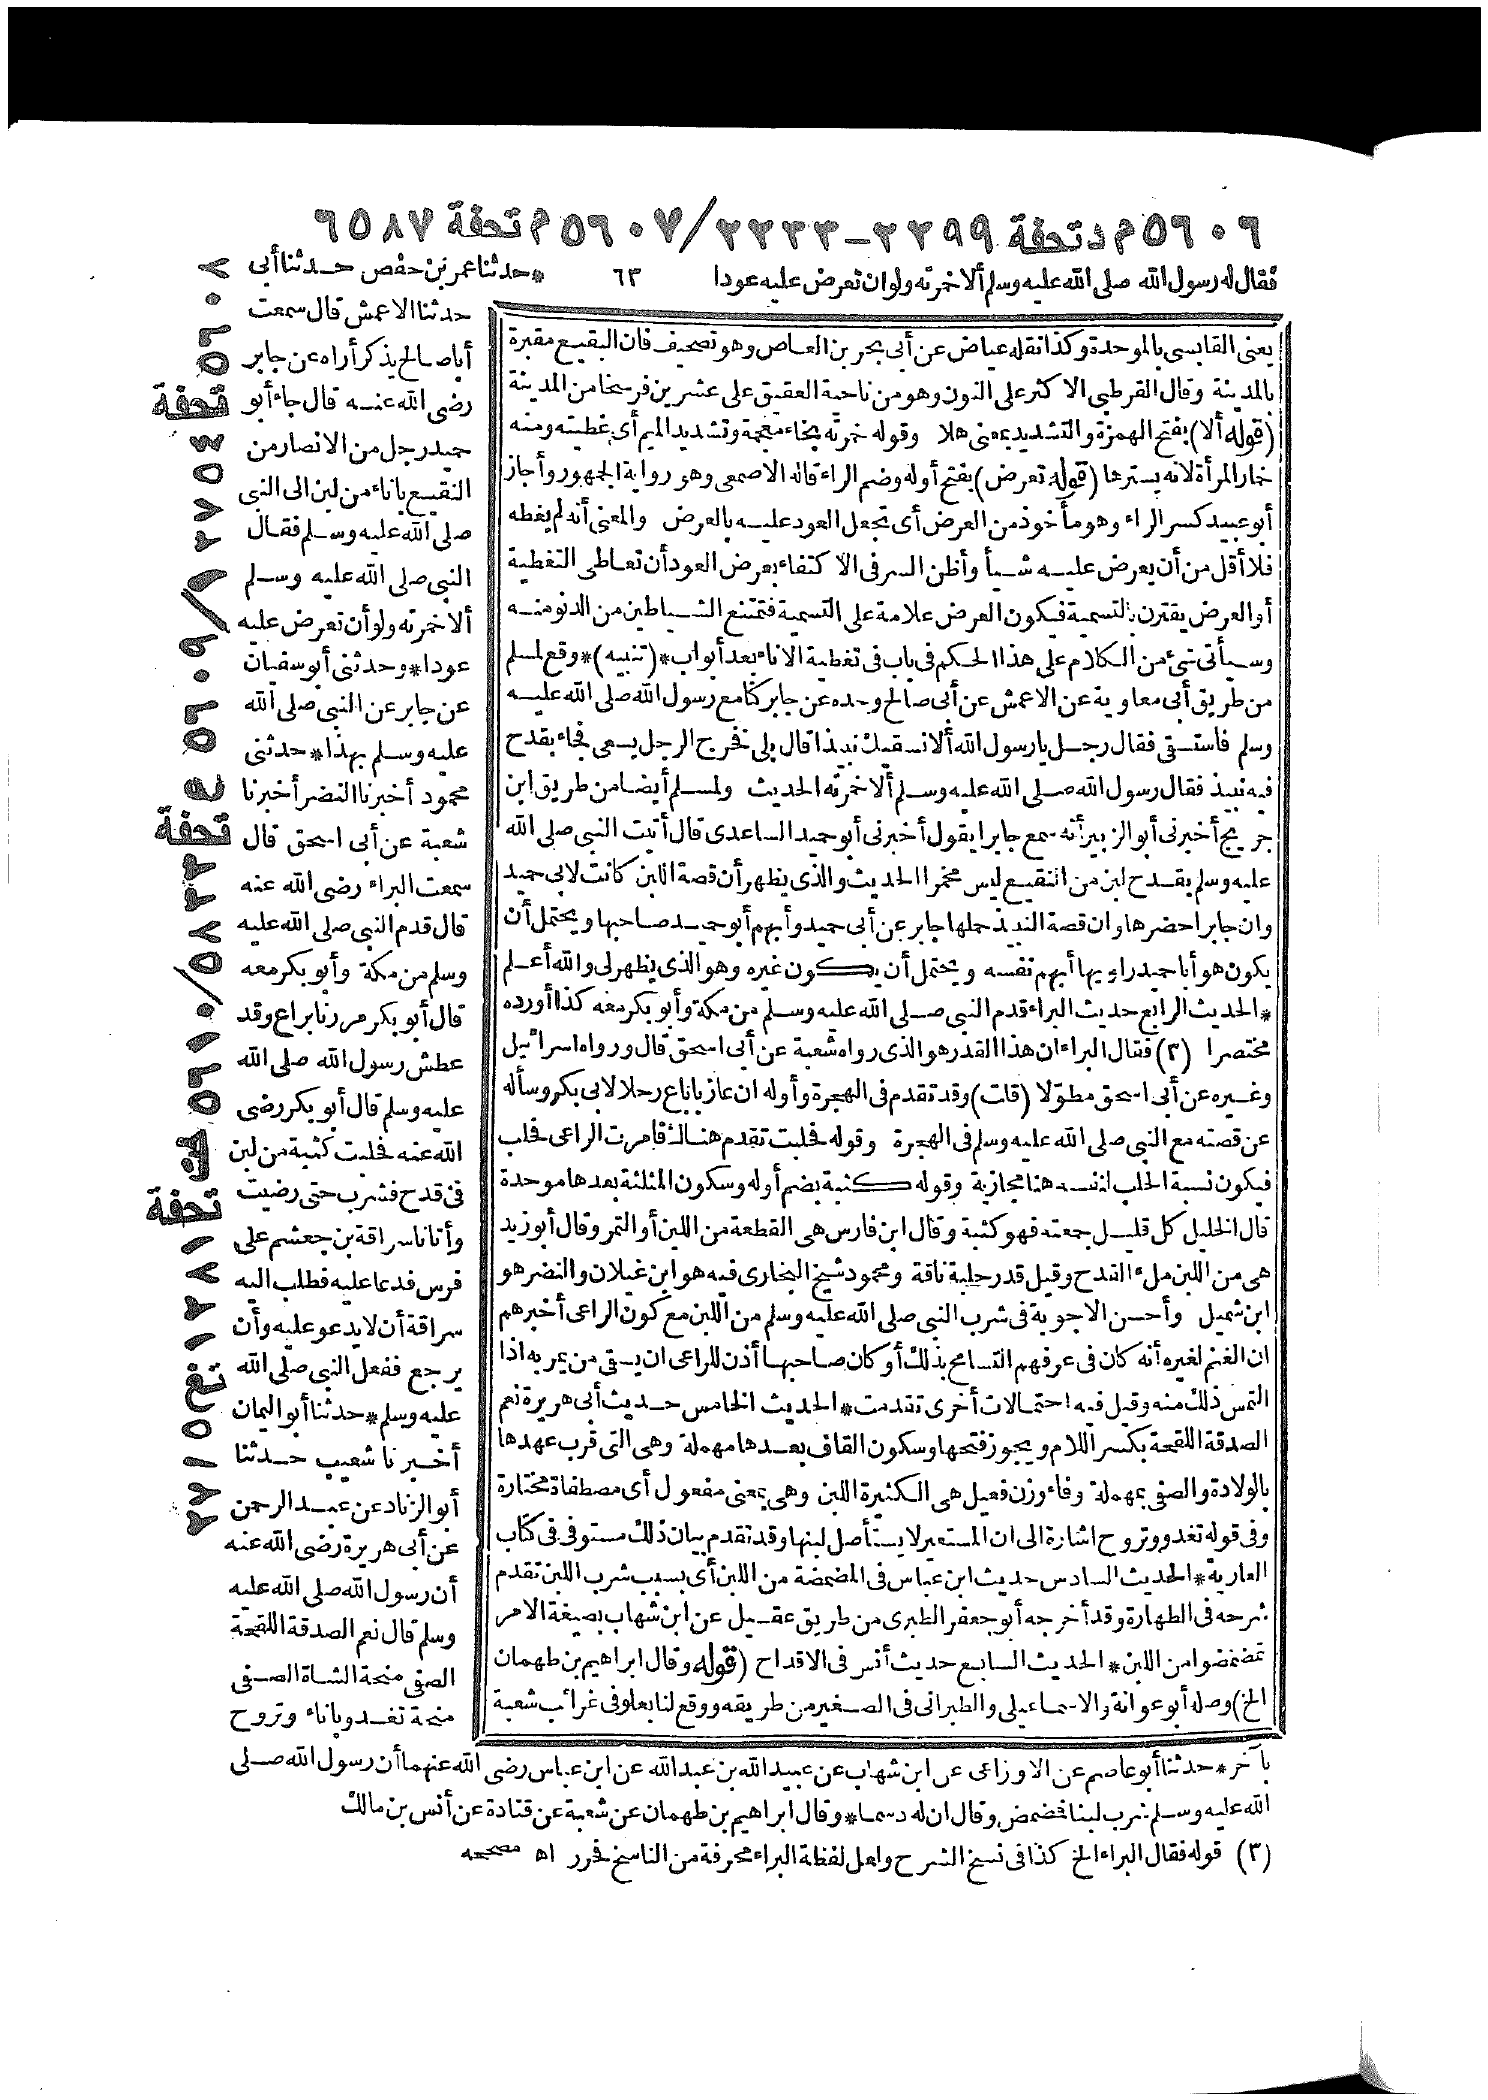 ٥٦٠٦ م د تحفة ٢٢٩٩ - ٢٢٣٣ / ٥٦٠٧ م تحفة ٦٥٨٧
فقال له رسول الله صلى الله عليه وسلم ألا خمرته ولو ان تعرض عليه عودا
٦٣
* حدثنا عمر بن حفص حدثنا أبي
حدثنا الاعمش قال سمعت
أبا صالح يذكر أراه عن جابر
رضى الله عنه قال جاء أبو
حميد رجل من الانصار من
النقيع باناء من لبن الى النبي
صلى الله عليه وسلم فقال
النبي صلى الله عليه وسلم
ألا خمرته ولو أن تعرض عليه
عودا * وحدثنى أبو سفيان
عن جابر عن النبي صلى الله
عليه وسلم بهذا * حدثنى
محمود أخبرنا النضر أخبرنا
شعبة عن أبى اسحق قال
سمعت البراء رضى الله عنه
قال قدم النبي صلى الله عليه
وسلم من مكة وأبو بكر معه
قال أبو بكر مررنا براع وقد
عطش رسول الله صلى الله
عليه وسلم قال أبو بكر رضى
الله عنه فحلبت كثبة من لبن
فى قدح فشرب حتى رضيت
وأتانا سراقة بن جعشم على
فرس فدعا عليه فطلب اليه
سراقة أن لا يدعو عليه وأن
يرجع ففعل النبي صلى الله
عليه وسلم * حدثنا أبو اليمان
أخبرنا شعيب حدثنا
أبو الزناد عن عبد الرحمن
عن أبى هريرة رضى الله عنه
أن رسول الله صلى الله عليه
وسلم قال نعم الصدقة اللقحة
الصفى منحة الشاة الصفى
منحة تغدو باناء وتروح
يعنى القابسى بالموحدة وكذا نقله عياض عن أبى بحر بن العاص وهو تصحيف فان البقيع مقبرة
بالمدينة وقال القرطبى الاكثر على النون وهو من ناحية العقيق على عشرين فرسخا من المدينة
(قوله ألا) بفتح الهمزة والتشديد بمعنى هلا وقوله خمرته بخاء معجمة وتشديد الميم أى غطيته ومنه
خمار المرأة لانه يسترها (قوله تعرض) بفتح أوله وضم الراء قاله الاصمعى وهو رواية الجمهور وأجاز
أبو عبيد كسر الراء وهو مأخوذ من العرض أى تجعل العود عليه بالعرض والمعنى أنه لم يغطه
فلا أقل من أن يعرض عليه شيأ وأظن السر فى الاكتفاء بعرض العود أن تعاطى التغطية
أو العرض يقترن بالتسمية فيكون العرض علامة على التسمية فتمتنع الشياطين من الدنو منه
وسيأتى شئ من الكلام على هذا الحكم فى باب فى تغطية الاناء بعد أبواب * (تنبيه) * وقع لمسلم
من طريق أبى معاوية عن الاعمش عن أبى صالح وحده عن جابر كنا مع رسول الله صلى الله عليه
وسلم فاستسقى فقال رجل يا رسول الله ألا نسقيك نبيذا قال بلى فخرج الرجل يسعى فجاء بقدح
فيه نبيذ فقال رسول الله صلى الله عليه وسلم ألا خمرته الحديث ولمسلم أيضا من طريق ابن
جريج أخبرنى أبو الزبير أنه سمع جابرا يقول أخبرنى أبو حميد الساعدى قال أتيت النبي صلى الله
عليه وسلم بقدح لبن من النقيع ليس مخمرا الحديث والذى يظهر أن قصة اللبن كانت لابى حميد
وان جابرا حضرها وان قصة النبيذ حملها جابر عن أبى حميد وأبهم أبو حميد صاحبها ويحتمل أن
يكون هو أبا حميد راويها أبهم نفسه ويحتمل أن يكون غيره وهو الذى يظهر لى والله أعلم
* الحديث الرابع حديث البراء قدم النبي صلى الله عليه وسلم من مكة وأبو بكر معه كذا أورده
مختصرا (٣) فقال البراء ان هذا القدر هو الذى رواه شعبة عن أبى اسحق قال ورواه اسرائيل
وغيره عن أبى اسحق مطوّلا (قلت) وقد تقدم فى الهجرة وأوله ان عازبا باع رحلا لابى بكر وسأله
عن قصته مع النبي صلى الله عليه وسلم فى الهجرة وقوله فحلبت تقدم هناك فأمرت الراعى فحلب
فيكون نسبة الحلب لنفسه هنا مجازية وقوله كثبة بضم أوله وسكون المثلثة بعدها موحدة
قال الخليل كل قليل جمعته فهو كثبة وقال ابن فارس هى القطعة من اللبن أو التمر وقال أبو زيد
هى من اللبن ملء القدح وقيل قدر حلبة ناقة ومحمود شيخ البخارى فيه هو ابن غيلان والنضر هو
ابن شميل وأحسن الاجوبة فى شرب النبي صلى الله عليه وسلم من اللبن مع كون الراعى أخبرهم
ان الغنم لغيره أنه كان فى عرفهم التسامح بذلك أو كان صاحبها أذن للراعى ان يسقى من يمر به اذا
التمس ذلك منه وقيل فيه احتمالات أخرى تقدمت * الحديث الخامس حديث أبى هريرة نعم
الصدقة اللقحة بكسر اللام ويجوز فتحها وسكون القاف بعدها مهملة وهى التى قرب عهدها
بالولادة والصفى بمهملة وفاء وزن فعيل هى الكثيرة اللبن وهى بمعنى مفعول أى مصطفاة مختارة
وفى قوله تغدو وتروح اشارة الى ان المستعير لا يستأصل لبنها وقد تقدم بيان ذلك مستوفى فى كتاب
العارية * الحديث السادس حديث ابن عباس فى المضمضة من اللبن أى بسبب شرب اللبن تقدم
شرحه فى الطهارة وقد أخرجه أبو جعفر الطبرى من طريق عقيل عن ابن شهاب بصيغة الامر
تمضمضوا من اللبن * الحديث السابع حديث أنس فى الاقداح (قوله وقال ابراهيم بن طهمان
الخ) وصله أبو عوانة والاسماعيلى والطبرانى فى الصغير من طريقه ووقع لنا بعلو فى غرائب شعبة
بآخر * حدثنا أبو عاصم عن الاوزاعى عن ابن شهاب عن عبيد الله بن عبد الله عن ابن عباس رضى الله عنهما أن رسول الله صلى
الله عليه وسلم شرب لبنا فمضمض وقال ان له دسما * وقال ابراهيم بن طهمان عن شعبة عن قتادة عن أنس بن مالك
(٣) قوله فقال البراء الخ كذا فى نسخ الشرح ولعل لفظة البراء محرفة من الناسخ فحرر اه مصححه